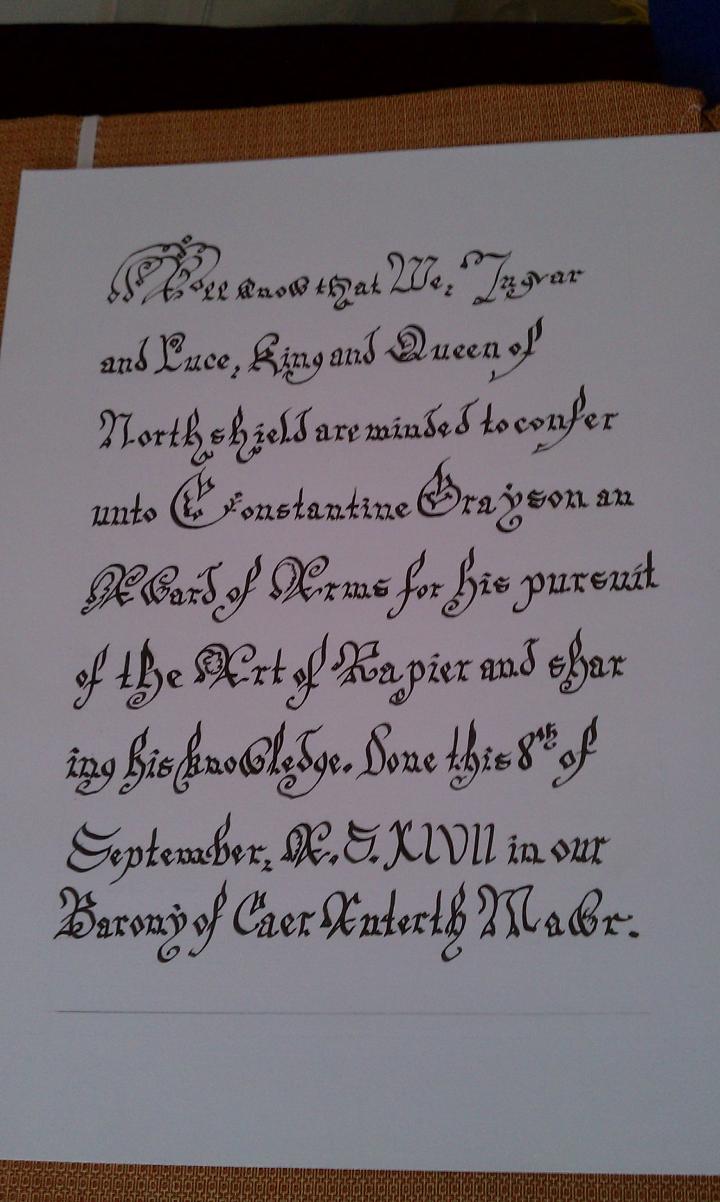 Well know that We, Ingvar
and Luce, King and Queen of
Northshield are minded to confer
unto Constantine Grayson an
Award of Arms for his pursuit
of the Art of Rapier and shar
ing his knowledge. Done this 8th of
September, A.S. XLVII in our
Barony of Caer Anterth Mawr.